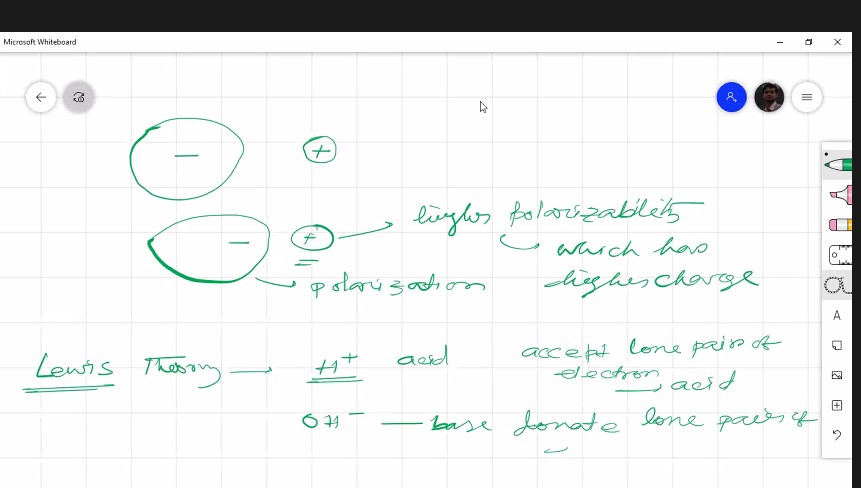 Microsoft Whiteboard
−
+
higher polarizability
− +
which has
higher charge
polarization
Lewis Theory → H+ acid accept lone pair of
electron acid
OH− — base donate lone pairs of
A